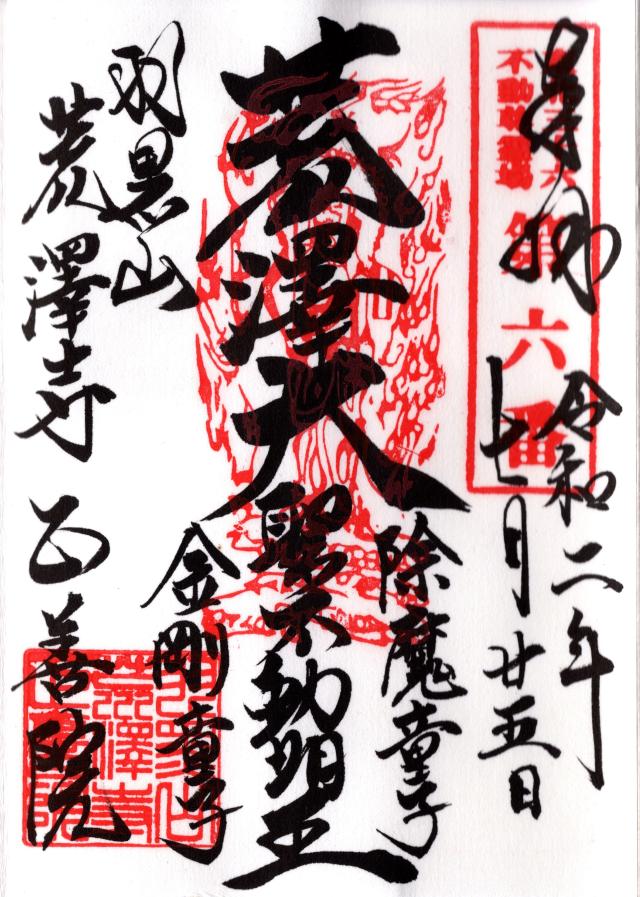 奉拝
令和二年
七月廿五日
不動尊霊場
第六番
除魔童子
荒澤大聖不動明王
金剛童子
羽黒山
荒澤寺 正善院